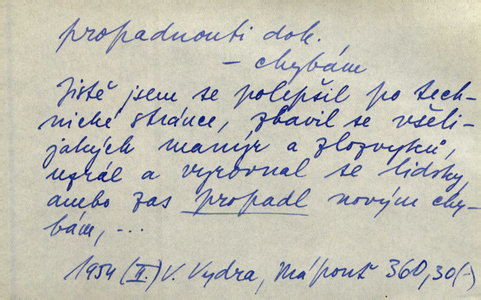 propadnouti dok.
– chybám
Jistě jsem se polepšil po tech-
nické stránce, zbavil se všeli-
jakých manýr a zlozvyků,
uzrál a vyrovnal se lidsky,
anebo zas propadl novým chy-
bám, ...
1954 (II.) V. Vydra, Má pouť 360, 30 (-)